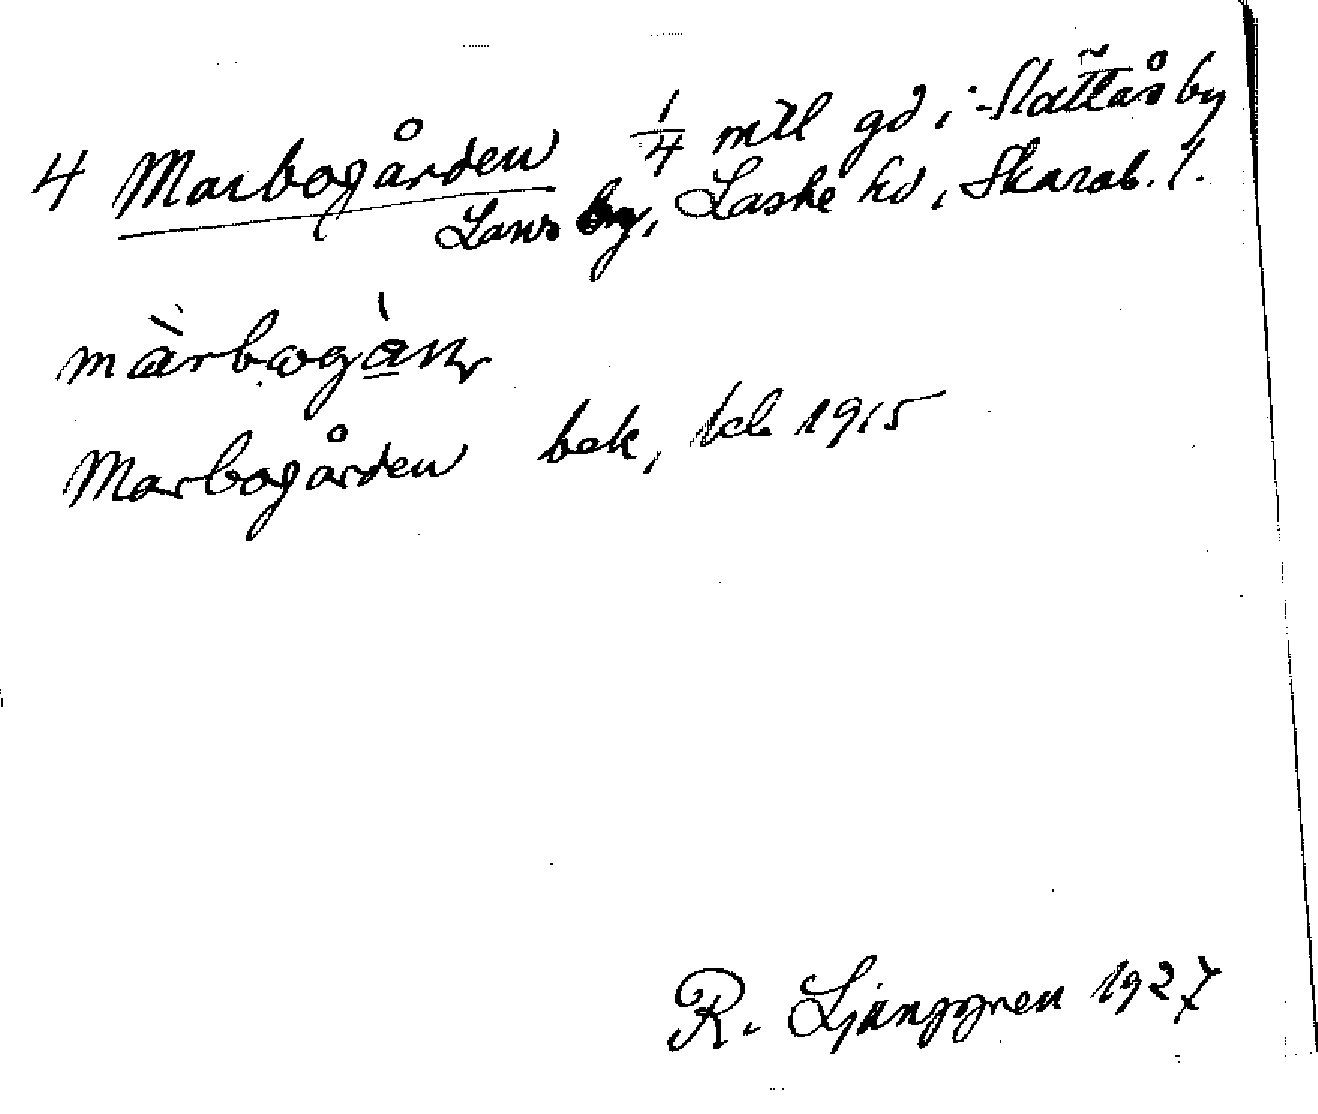 4 Marbogården 1/4 mtl gd i Slättås by
Lavs sn, Laske hd, Skarab. l.
màrbogàn
Marbogården bek, kcl 1915
R. Ljunggren 1927